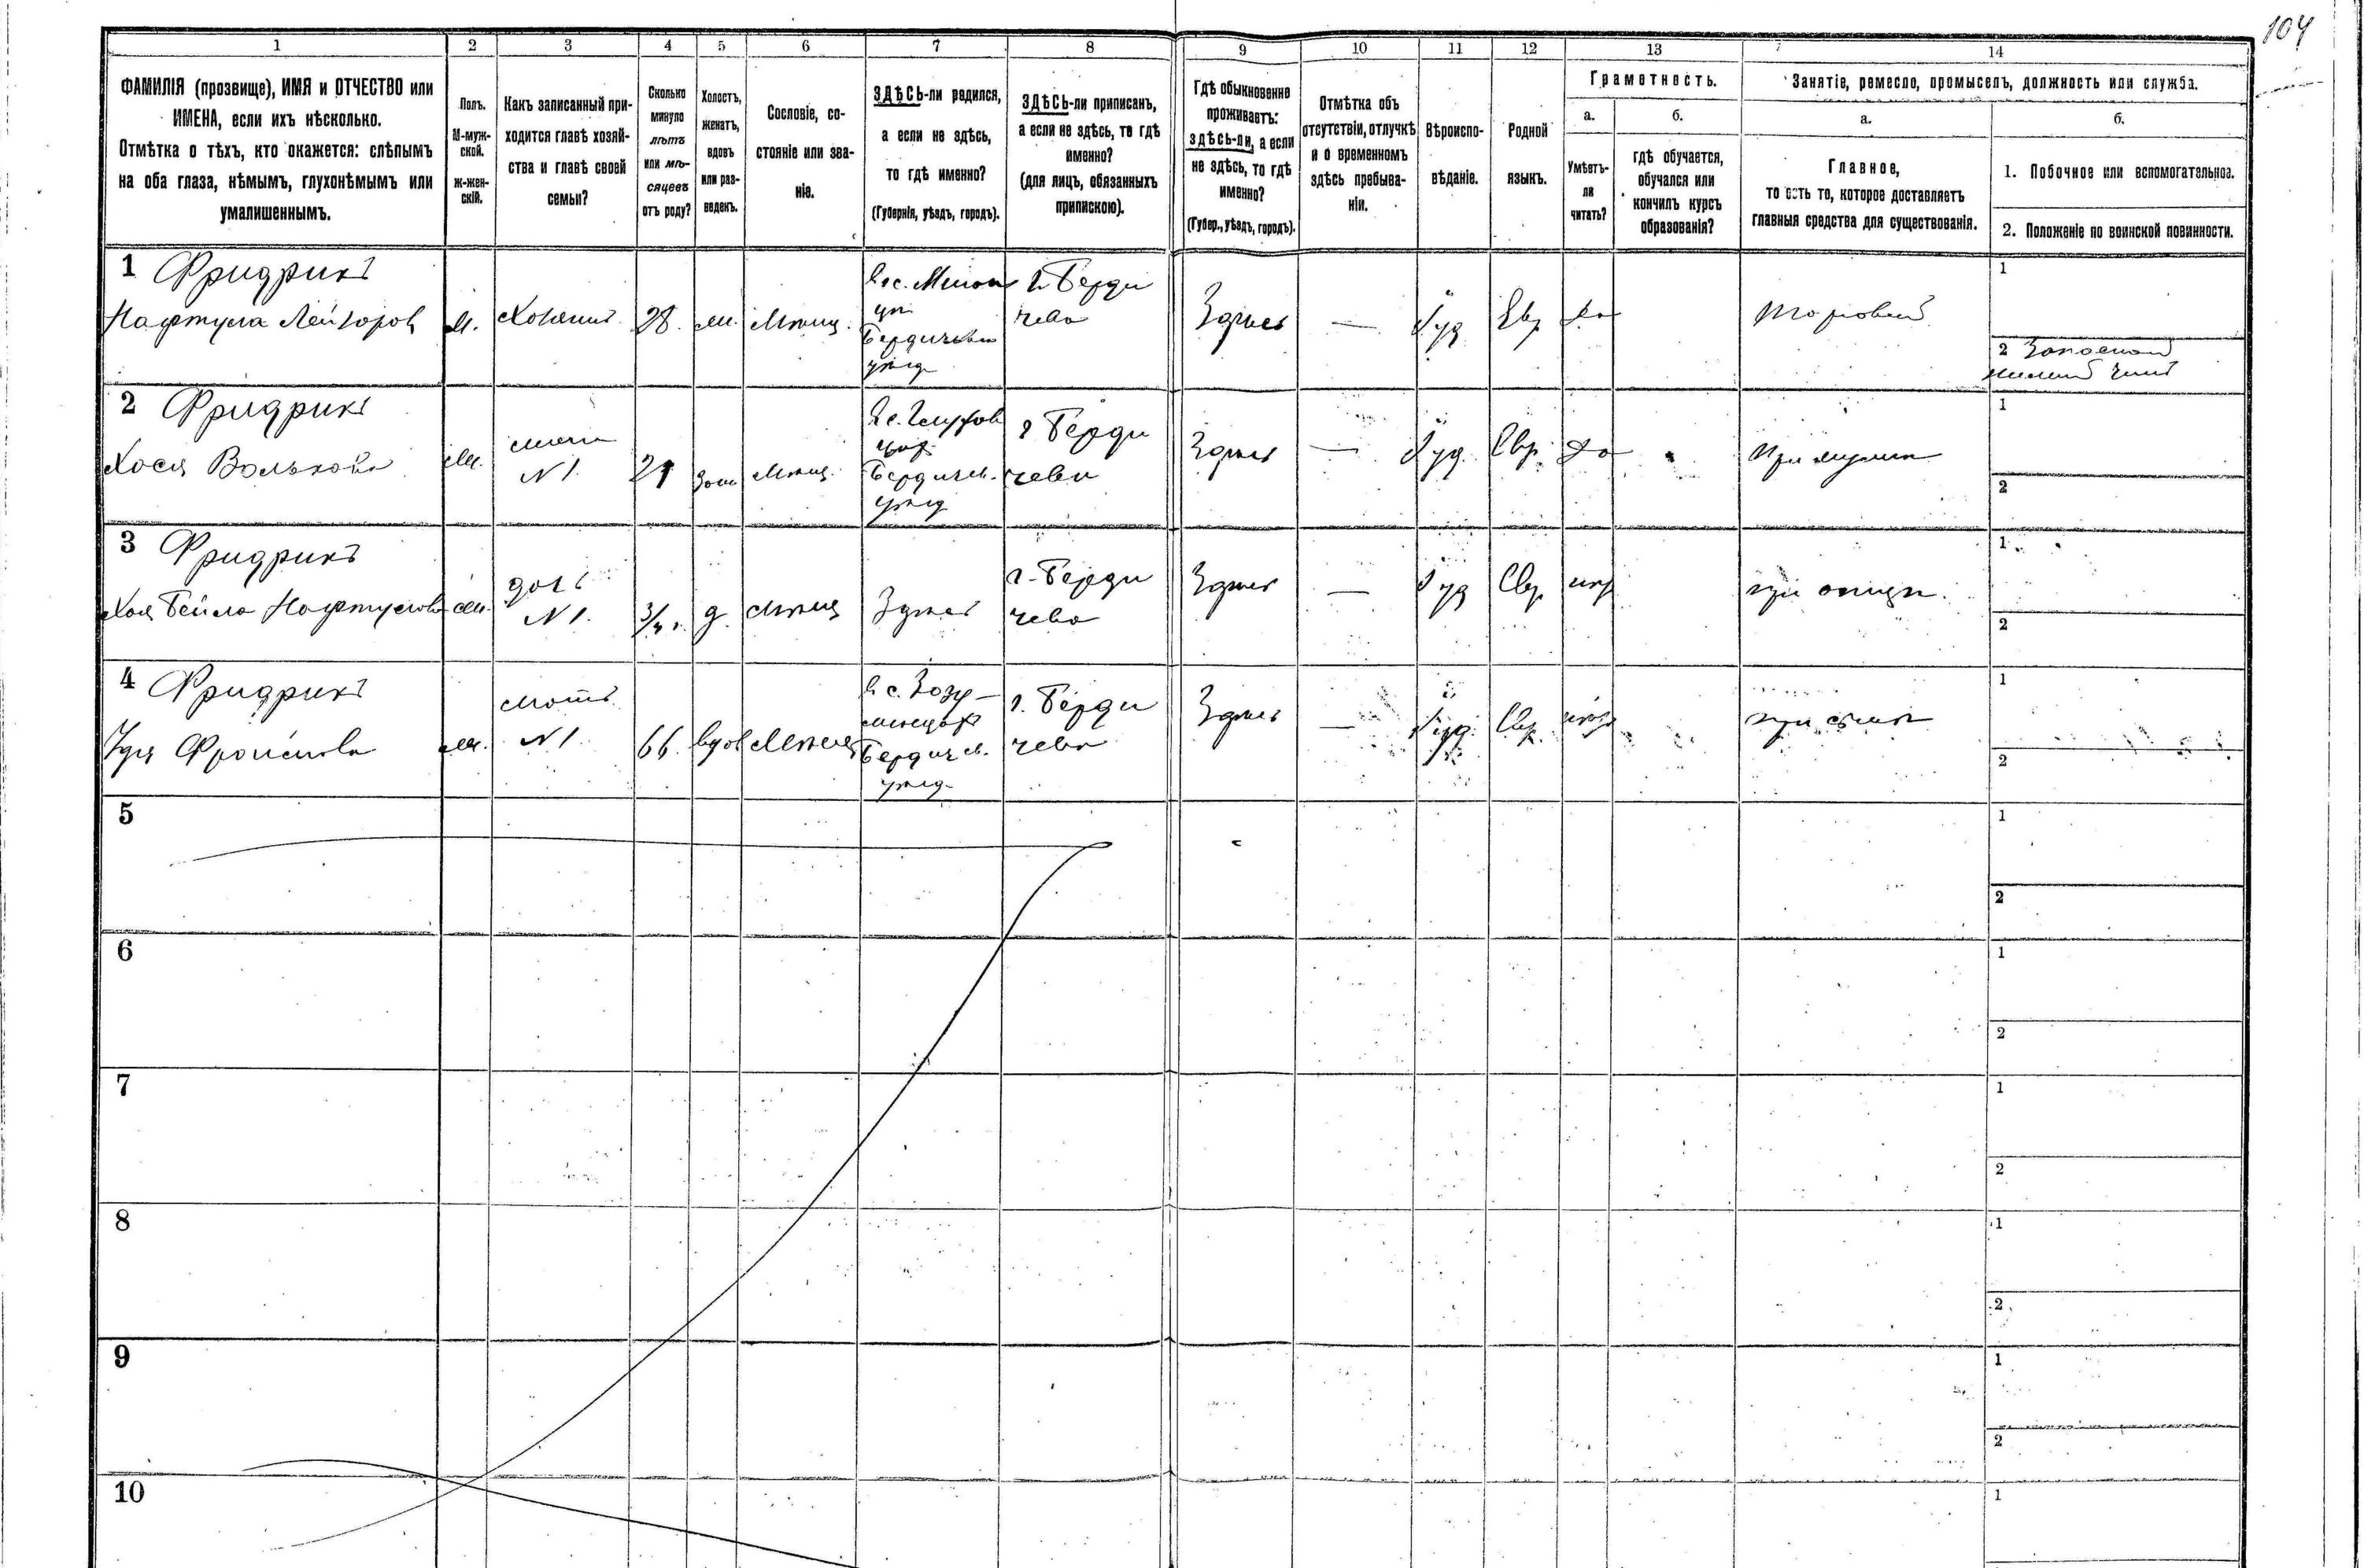 104
1 2 3 4 5 6 7 8 9 10 11 12 13 14
ФАМИЛІЯ (прозвище), ИМЯ и ОТЧЕСТВО или
ИМЕНА, если ихъ нѣсколько.
Отмѣтка о тѣхъ, кто окажется: слѣпымъ
на оба глаза, нѣмымъ, глухонѣмымъ или
умалишеннымъ.
Полъ.
М-муж-
ской.
Ж-жен-
скій.
Какъ записанный при-
ходится главѣ хозяй-
ства и главѣ своей
семьи?
Сколько
минуло
лѣтъ
или мѣ-
сяцевъ
отъ роду?
Холостъ,
женатъ,
вдовъ
или раз-
веденъ.
Сословіе, со-
стояніе или зва-
ніе.
ЗДѢСЬ-ли родился,
а если не здѣсь,
то гдѣ именно?
(Губернія, уѣздъ, городъ).
ЗДѢСЬ-ли приписанъ,
а если не здѣсь, то гдѣ
именно?
(для лицъ, обязанныхъ
припискою).
Гдѣ обыкновенно
проживаетъ:
ЗДѢСЬ-ли, а если
не здѣсь, то гдѣ
именно?
(Губер., уѣздъ, городъ).
Отмѣтка объ
отсутствіи, отлучкѣ
и о временномъ
здѣсь пребыва-
ніи.
Вѣроиспо-
вѣданіе.
Родной
языкъ.
Грамотность.
а.
Умѣетъ-
ли
читать?
б.
гдѣ обучается,
обучался или
кончилъ курсъ
образованія?
Занятіе, ремесло, промыселъ, должность или служба.
а.
Главное,
то есть то, которое доставляетъ
главныя средства для существованія.
б.
1. Побочное или вспомогательное.
2. Положеніе по воинской повинности.
1 Фридрикъ
Нафтула Лейзоровъ
М.
Хозяинъ
28.
Мѣщ.
Бердичевск
уѣзд
г. Берди
чева
Здѣсь
—
Іуд
Евр
да
Торговецъ
1
2 Запасной
нижній чинъ
2 Фридрикъ
Хося Волькова
жена
N 1.
21
зам
Мѣщ.
Бердичев.
уѣзд
г Берди
чева
Здѣсь
—
Іуд.
Евр.
да
при мужѣ
1
2
3 Фридрикъ
Хая Бейла Нафтулова
дочь
N 1.
3/4 г.
д.
Мѣщ
Здѣсь
г. Берди
чева
Здѣсь
—
Іуд
Евр.
нѣт
при отцѣ.
1
2
4 Фридрикъ
мать
N 1.
66.
вдов
Мѣщ
Бердичев.
уѣзд
г. Берди
чева
Здѣсь
—
Іуд.
Евр.
нѣт
при сынѣ
1
2
5
1
2
6
1
2
7
1
2
8
1
2
9
1
2
10
1